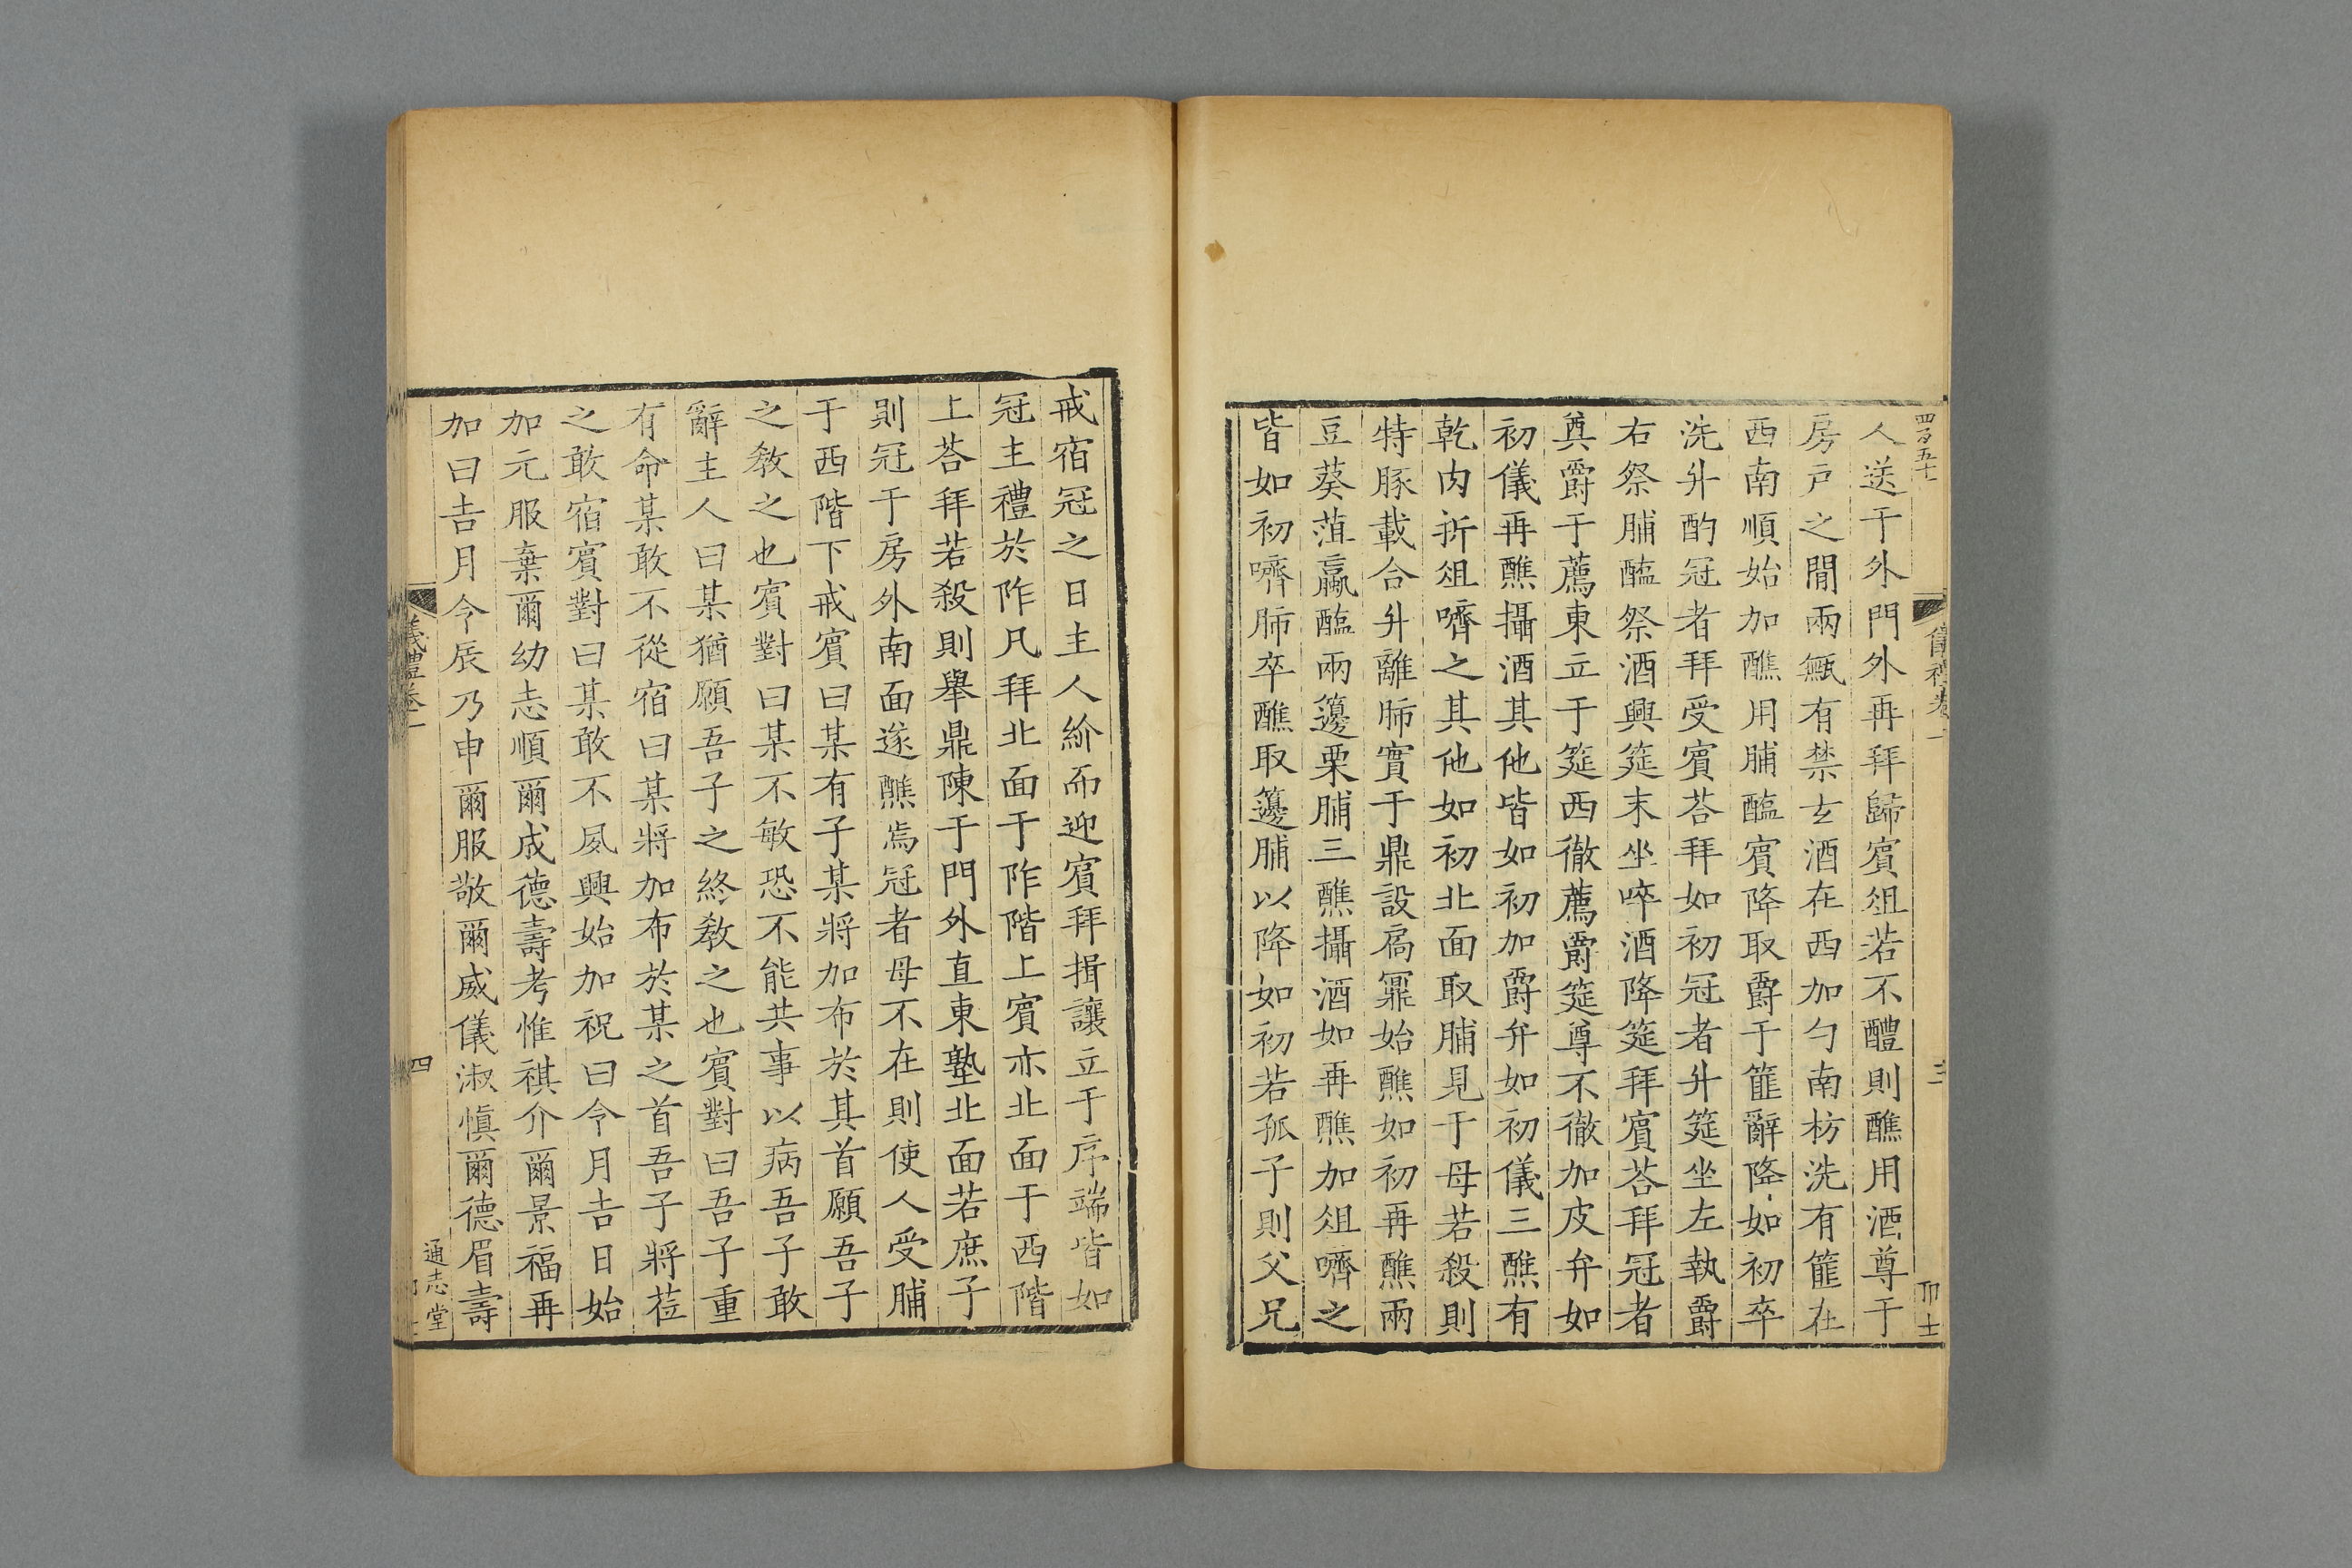 四百五十
人送于外門外再拜歸賓俎若不醴則醮用酒尊于
房戶之閒兩甒有禁玄酒在西加勺南枋洗有篚在
西南順始加醮用脯醢賓降取爵于篚辭降如初卒
洗升酌冠者拜受賓荅拜如初冠者升筵坐左執爵
右祭脯醢祭酒興筵末坐啐酒降筵拜賓荅拜冠者
奠爵于薦東立于筵西徹薦爵筵尊不徹加皮弁如
初儀再醮攝酒其他皆如初加爵弁如初儀三醮有
乾肉折俎嚌之其他如初北面取脯見于母若殺則
特豚載合升離肺實于鼎設扃鼏始醮如初再醮兩
豆葵菹蠃醢兩籩栗脯三醮攝酒如再醮加俎嚌之
皆如初嚌肺卒醮取籩脯以降如初若孤子則父兄
戒宿冠之日主人紒而迎賓拜揖讓立于序端皆如
冠主禮於阼凡拜北面于阼階上賓亦北面于西階
上荅拜若殺則舉鼎陳于門外直東塾北面若庶子
則冠于房外南面遂醮焉冠者母不在則使人受脯
于西階下戒賓曰某有子某將加布於其首願吾子
之教之也賓對曰某不敏恐不能共事以病吾子敢
辭主人曰某猶願吾子之終教之也賓對曰吾子重
有命某敢不從宿曰某將加布於某之首吾子將莅
之敢宿賓對曰某敢不夙興始加祝曰令月吉日始
加元服棄爾幼志順爾成德壽考惟祺介爾景福再
加曰吉月令辰乃申爾服敬爾威儀淑慎爾德眉壽
儀禮卷一
四
通志堂